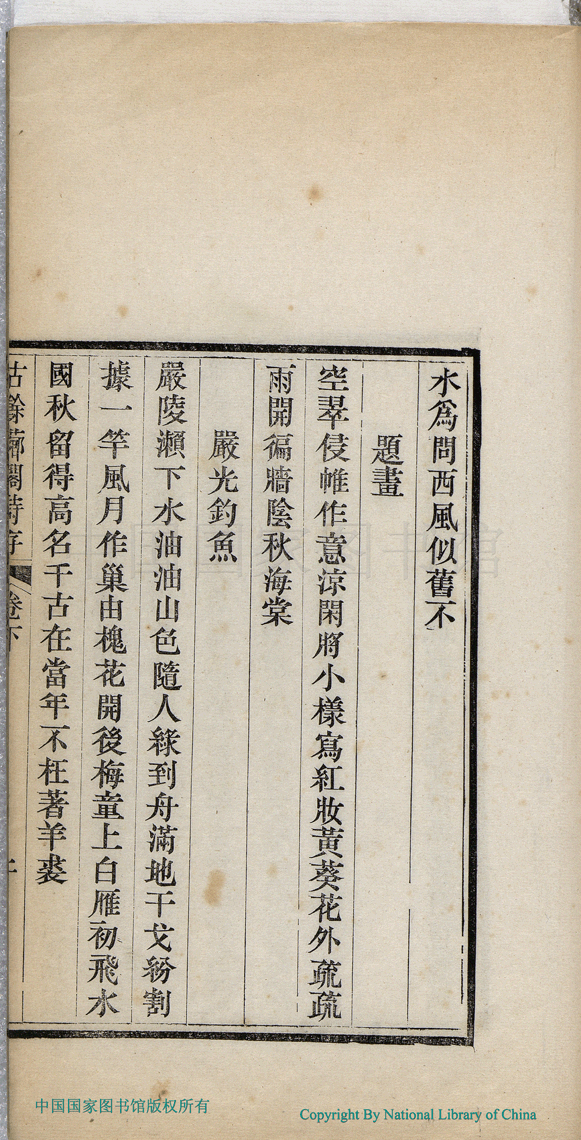 水為問西風似舊不
題畫
空翠侵帷作意涼閑將小樣寫紅妝黃葵花外疏疏
雨開徧牆陰秋海棠
嚴光釣魚
嚴陵瀨下水油油山色隨人綠到舟滿地干戈紛割
據一竿風月作巢由槐花開後梅童上白雁初飛水
國秋留得高名千古在當年不枉著羊裘
卷下
中国国家图书馆版权所有
Copyright By National Library of China